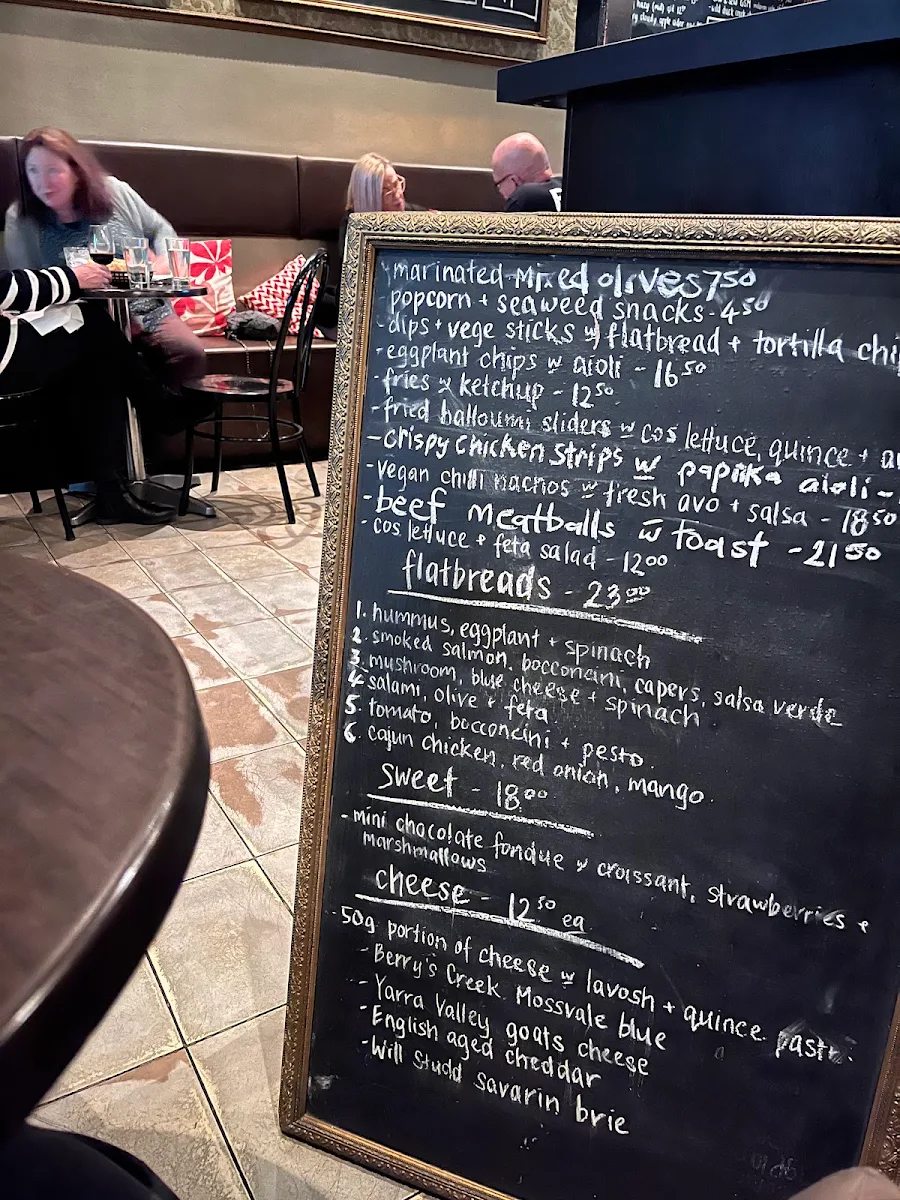 - marinated mixed olives 7.50
- popcorn + seaweed snacks - 4.50
- dips + vege sticks w flatbread + tortilla chi
- eggplant chips w aioli - 16.50
- fries w ketchup - 12.50
- fried halloumi sliders w cos lettuce, quince + a
- crispy chicken strips w paprika aioli -
- vegan chilli nachos w fresh avo + salsa - 18.50
- beef meatballs w toast - 21.50
- cos lettuce + feta salad - 12.00
flatbreads - 23.00
1. hummus, eggplant + spinach
2. smoked salmon, bocconcini, capers, salsa verde
3. mushroom, blue cheese + spinach
4. salami, olive + feta
5. tomato, bocconcini + pesto
6. cajun chicken, red onion, mango.
sweet - 18.00
- mini chocolate fondue w croissant, strawberries +
marshmallows
cheese - 12.50 ea
- 50g portion of cheese w lavosh + quince paste.
- Berry's Creek Mossvale blue
- Yarra Valley goats cheese
- English aged cheddar
- Will Studd savarin brie